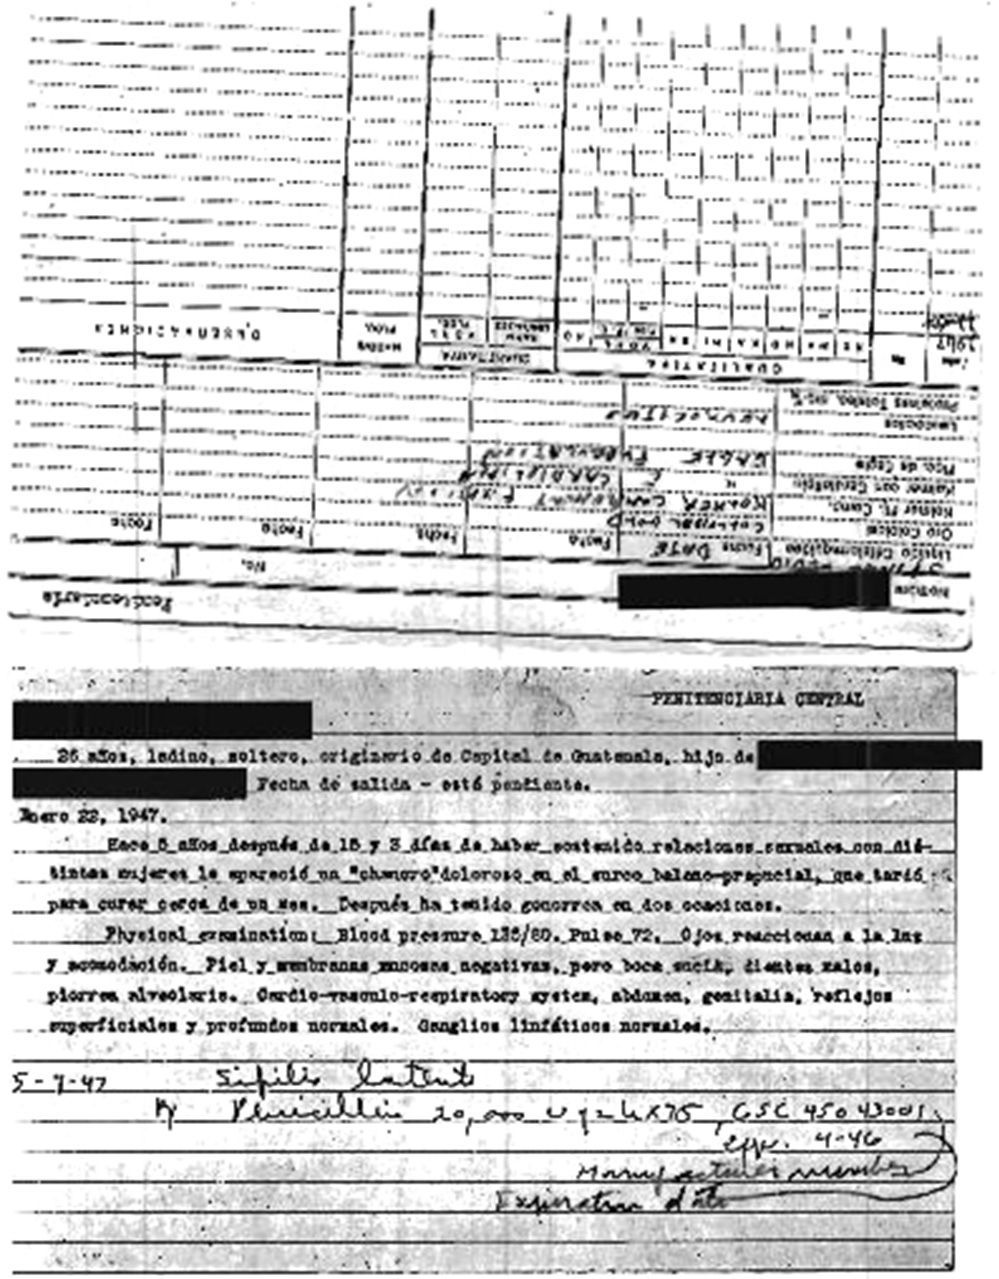 Penitenciaria
Nombre No.
SPINAL FLUID
Fecha DATE Fecha Fecha Fecha Fecha
Oro Coloidal COLLOIDAL GOLD
Kolmer Fi. Comp. KOLMER COMPLEMENT FIXATION
CARDIOLIPIN
Floc. de Eagle EAGLE FLOCULATION
Leucocitos
Proteinas Totales, mg.%
CUALITATIVA CUANTITATIVA
1947 No. OBSERVACIONES
PENITENCIARIA CENTRAL
26 años, ladino, soltero, originario de Capital de Guatemala, hijo de
Fecha de salida - está pendiente.
Enero 22, 1947.
Hace 5 años después de 15 y 3 días de haber sostenido relaciones sexuales con dis-
tintas mujeres le apareció un "chancro" doloroso en el surco balano-prepucial, que tardó
para curar cerca de un mes. Después ha tenido gonorrea en dos ocasiones.
Physical examination: Blood pressure 135/80. Pulse 72. Ojos reaccionan a la luz
y acomodación. Piel y membranas mucosas negativas, pero boca sucia, dientes malos,
piorrea alveolaris. Cardio-vasculo-respiratory system, abdomen, genitalia, reflejos
superficiales y profundos normales. Ganglios linfáticos normales.
5-7-47 Sifilis latente
Rx Penicillin 20,000 u q 2 h x 75, CSC 45043001
exp. 4-46
Manufactures number
Expiration date